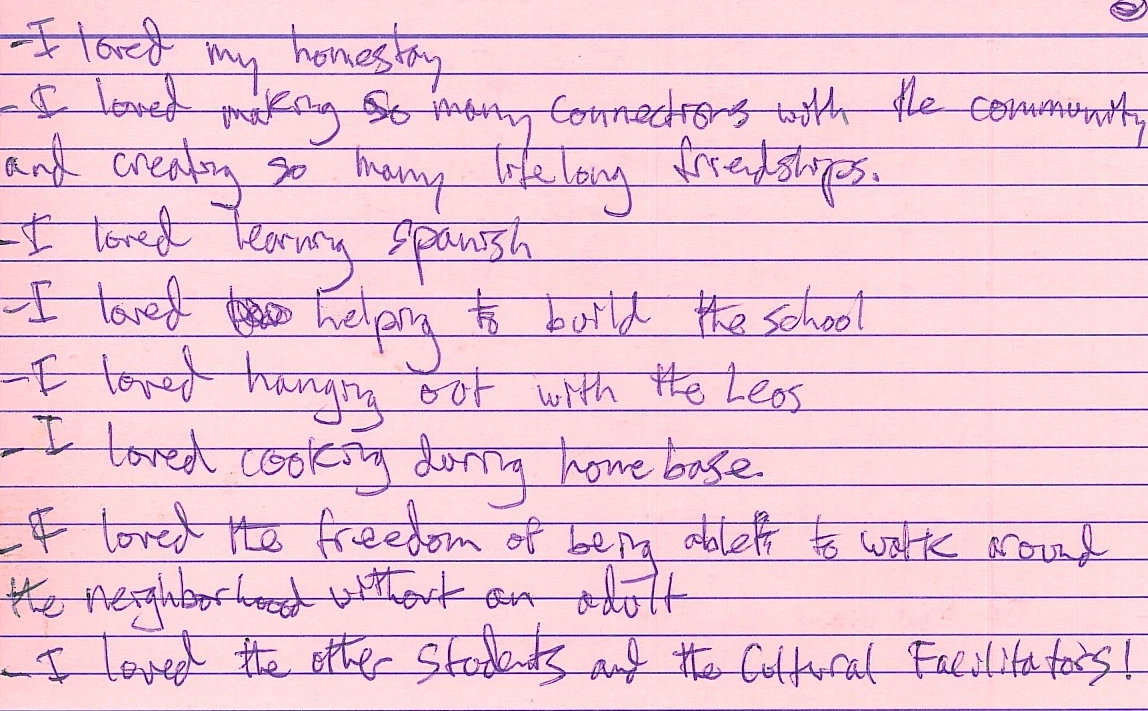 -I loved my homestay
-I loved making so many connections with the community
and creating so many lifelong friendships.
-I loved learning spanish
-I loved helping to build the school
-I loved hanging out with the Leos
-I loved cooking during homebase.
-I loved the freedom of being able to walk around
the neighborhood without an adult
-I loved the other students and the Cultural Facilitators!